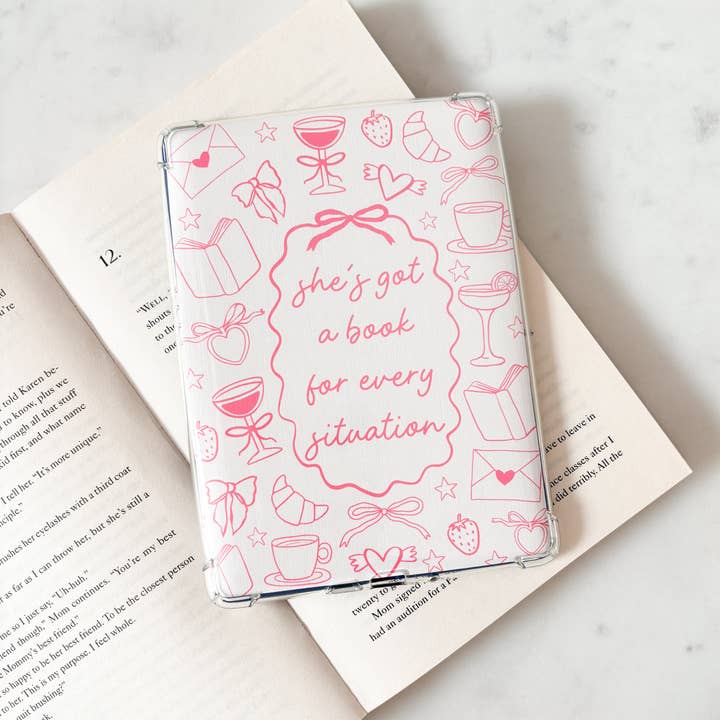 she's got
a book
for every
situation
12.
"WELL,
shouts
to the
told Karen be-
to know, plus we
through all that stuff
kid first, and what name
I tell her. "It's more unique."
brushes her eyelashes with a third coat
as far as I can throw her, but she's still a
me so I just say, "Uh-huh."
friend though." Mom continues. "You're my best
Mommy's best friend."
so happy to be her best friend. To be the closest person
to her. This is my purpose. I feel whole.
quit brushing?"
to leave in
once classes after I
did terribly. All the
twenty to
Mom signed
had an audition for a